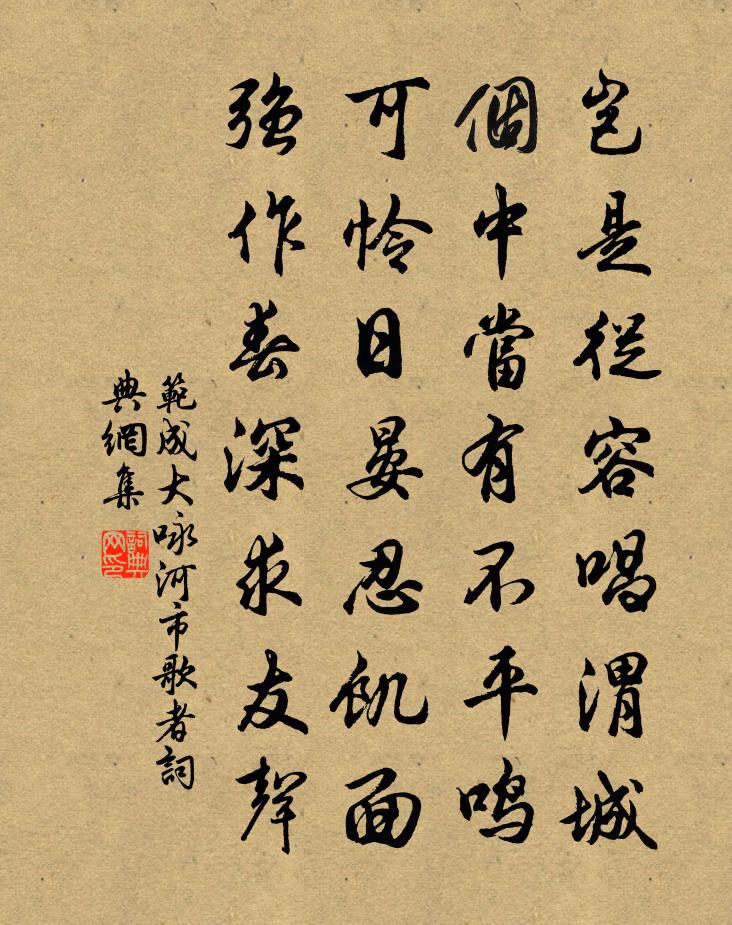 豈是從容唱渭城
個中當有不平鳴
可憐日晏忍飢面
強作春深求友聲
範成大咏河市歌者詞
典網集
詞典網印